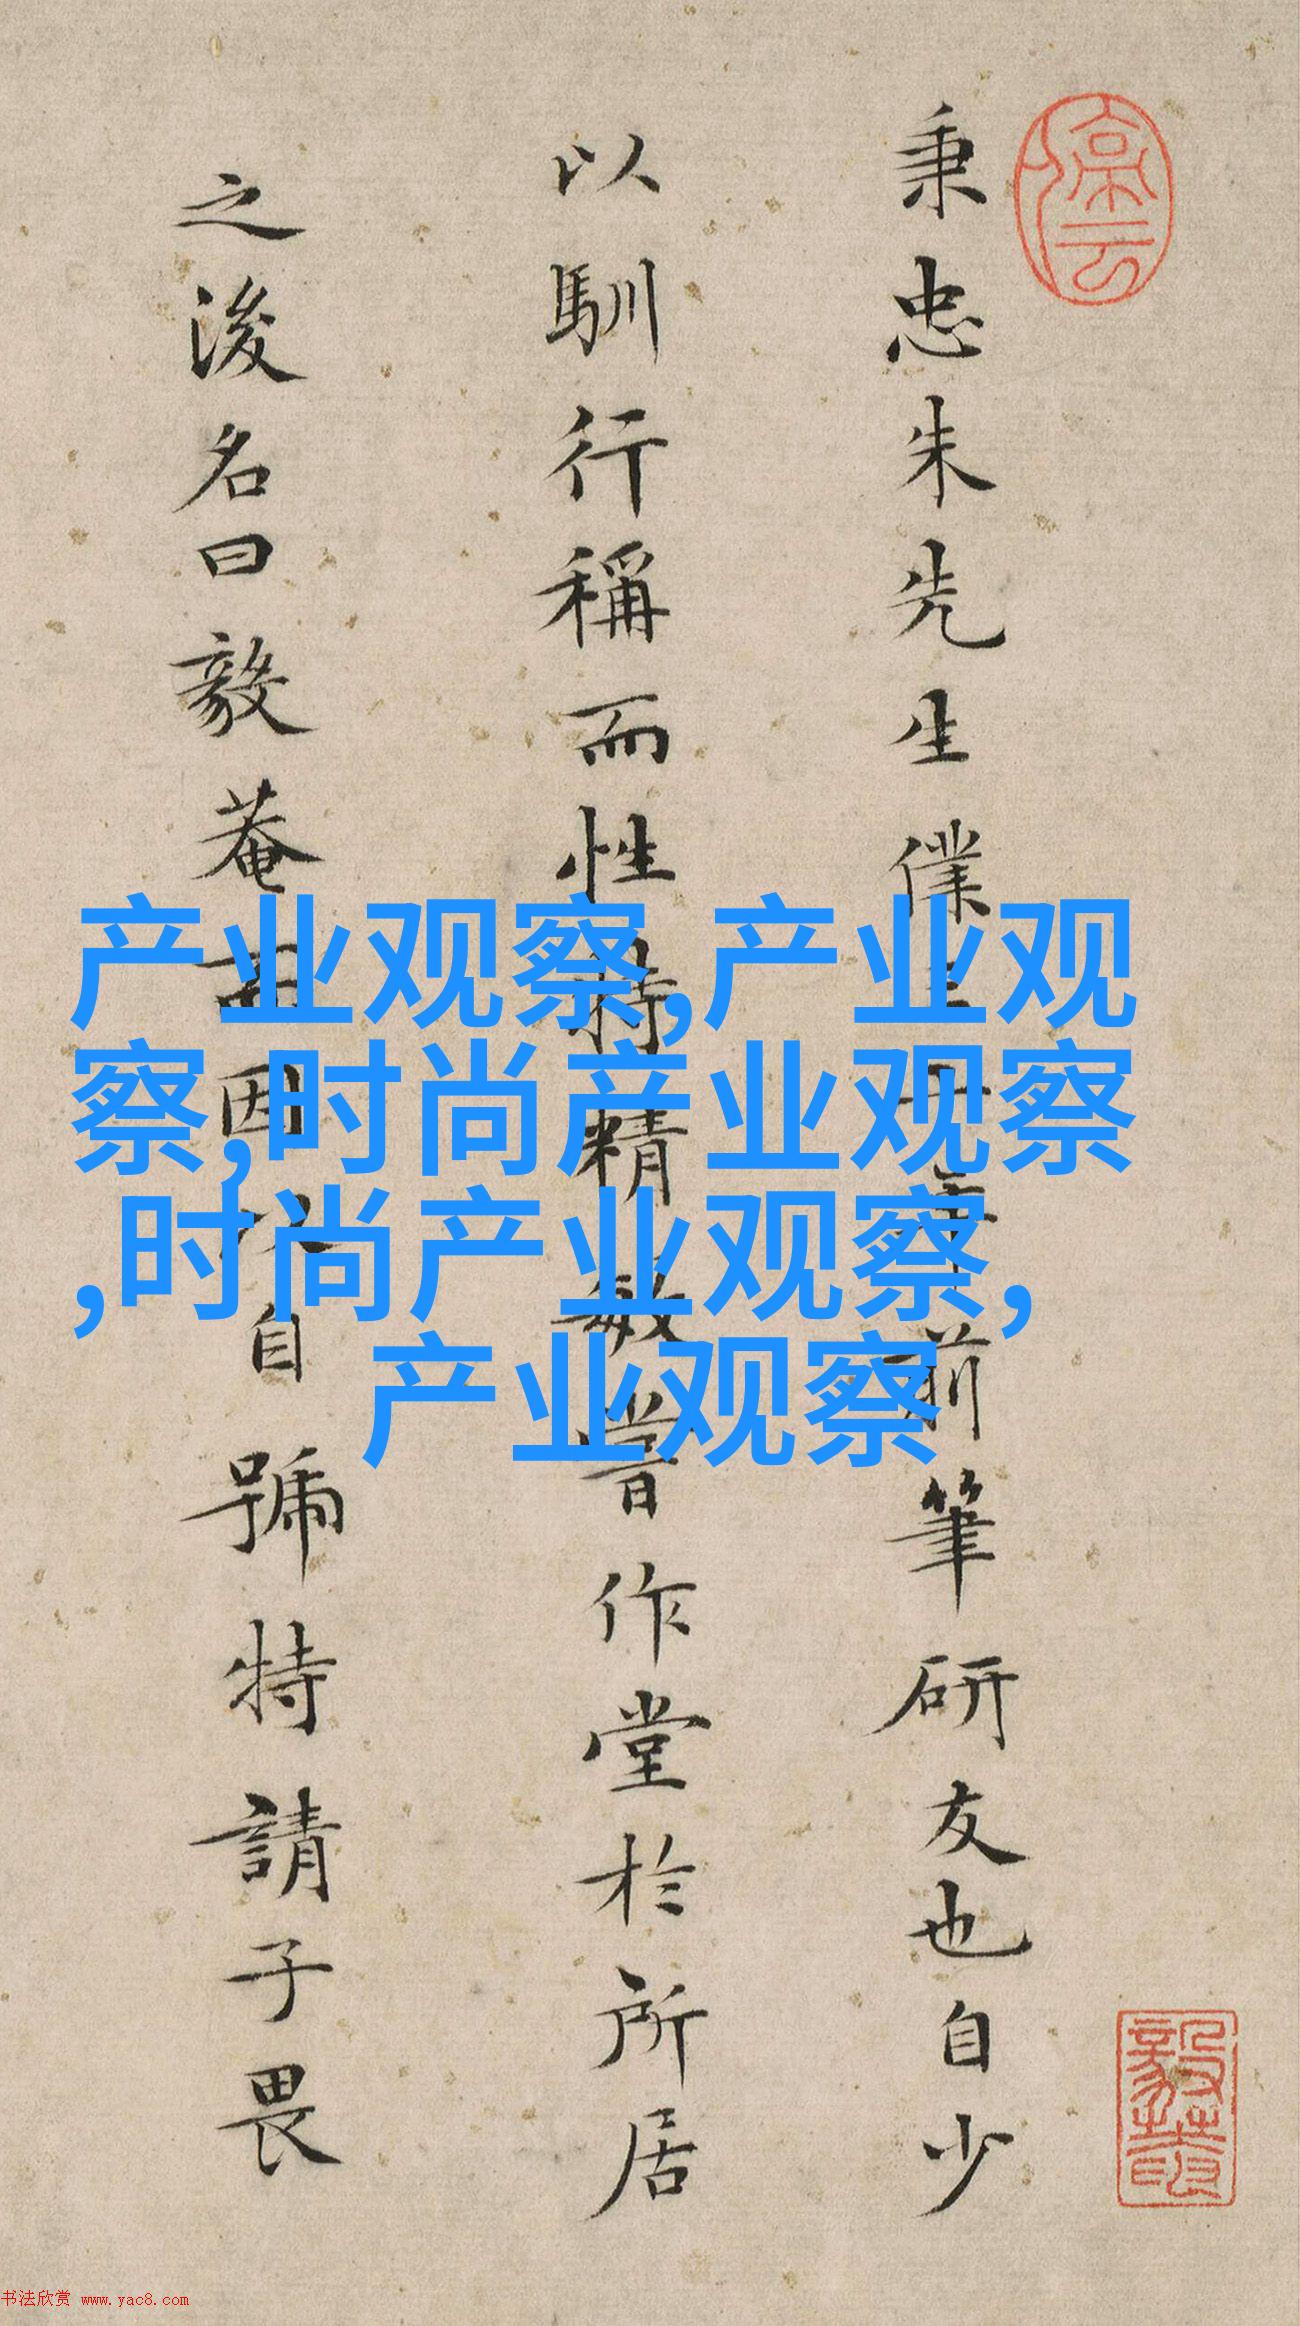 停云
秉忠朱先生僕十年前筆研友也自少
以馴行稱而性特精敏嘗作堂於所居
之浚名曰毅菴而因以自號特請子畏
产业观察,产业观
察,时尚产业观察
,时尚产业观察,
产业观察
书法欣赏 www.yac8.com